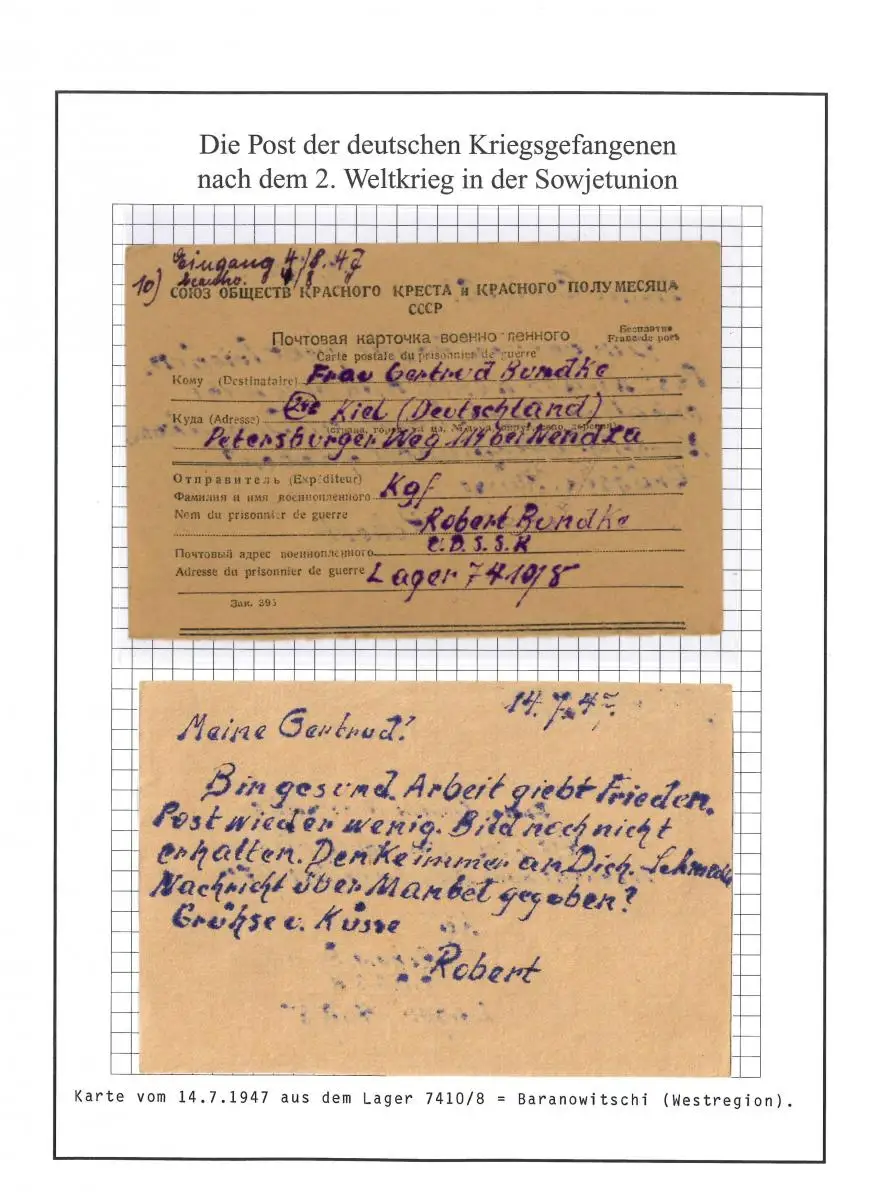 Die Post der deutschen Kriegsgefangenen
nach dem 2. Weltkrieg in der Sowjetunion
Eingang 4/8.47
10)
СОЮЗ ОБЩЕСТВ КРАСНОГО КРЕСТА и КРАСНОГО ПОЛУМЕСЯЦА
СССР
Почтовая карточка военнопленного
Бесплатно
Carte postale du prisonnier de guerre
Franc de port
Кому (Destinataire) Frau Gertrud Bundke
Куда (Adresse) Kiel (Deutschland)
Petersburger Weg 119 bei Nendza
Отправитель (Expéditeur)
Фамилия и имя военнопленного Kgf
Nom du prisonnier de guerre Robert Bundke
U.D.S.S.R
Почтовый адрес военнопленного
Adresse du prisonnier de guerre Lager 7410/8
Зак. 395
14.7.47.
Meine Gertrud!
Bin gesund. Arbeit giebt Frieden.
Post wieder wenig. Bild noch nicht
erhalten. Denke immer an Dich.
Nachricht über Manbet gegeben?
Grühse u. Küsse
Robert
Karte vom 14.7.1947 aus dem Lager 7410/8 = Baranowitschi (Westregion).